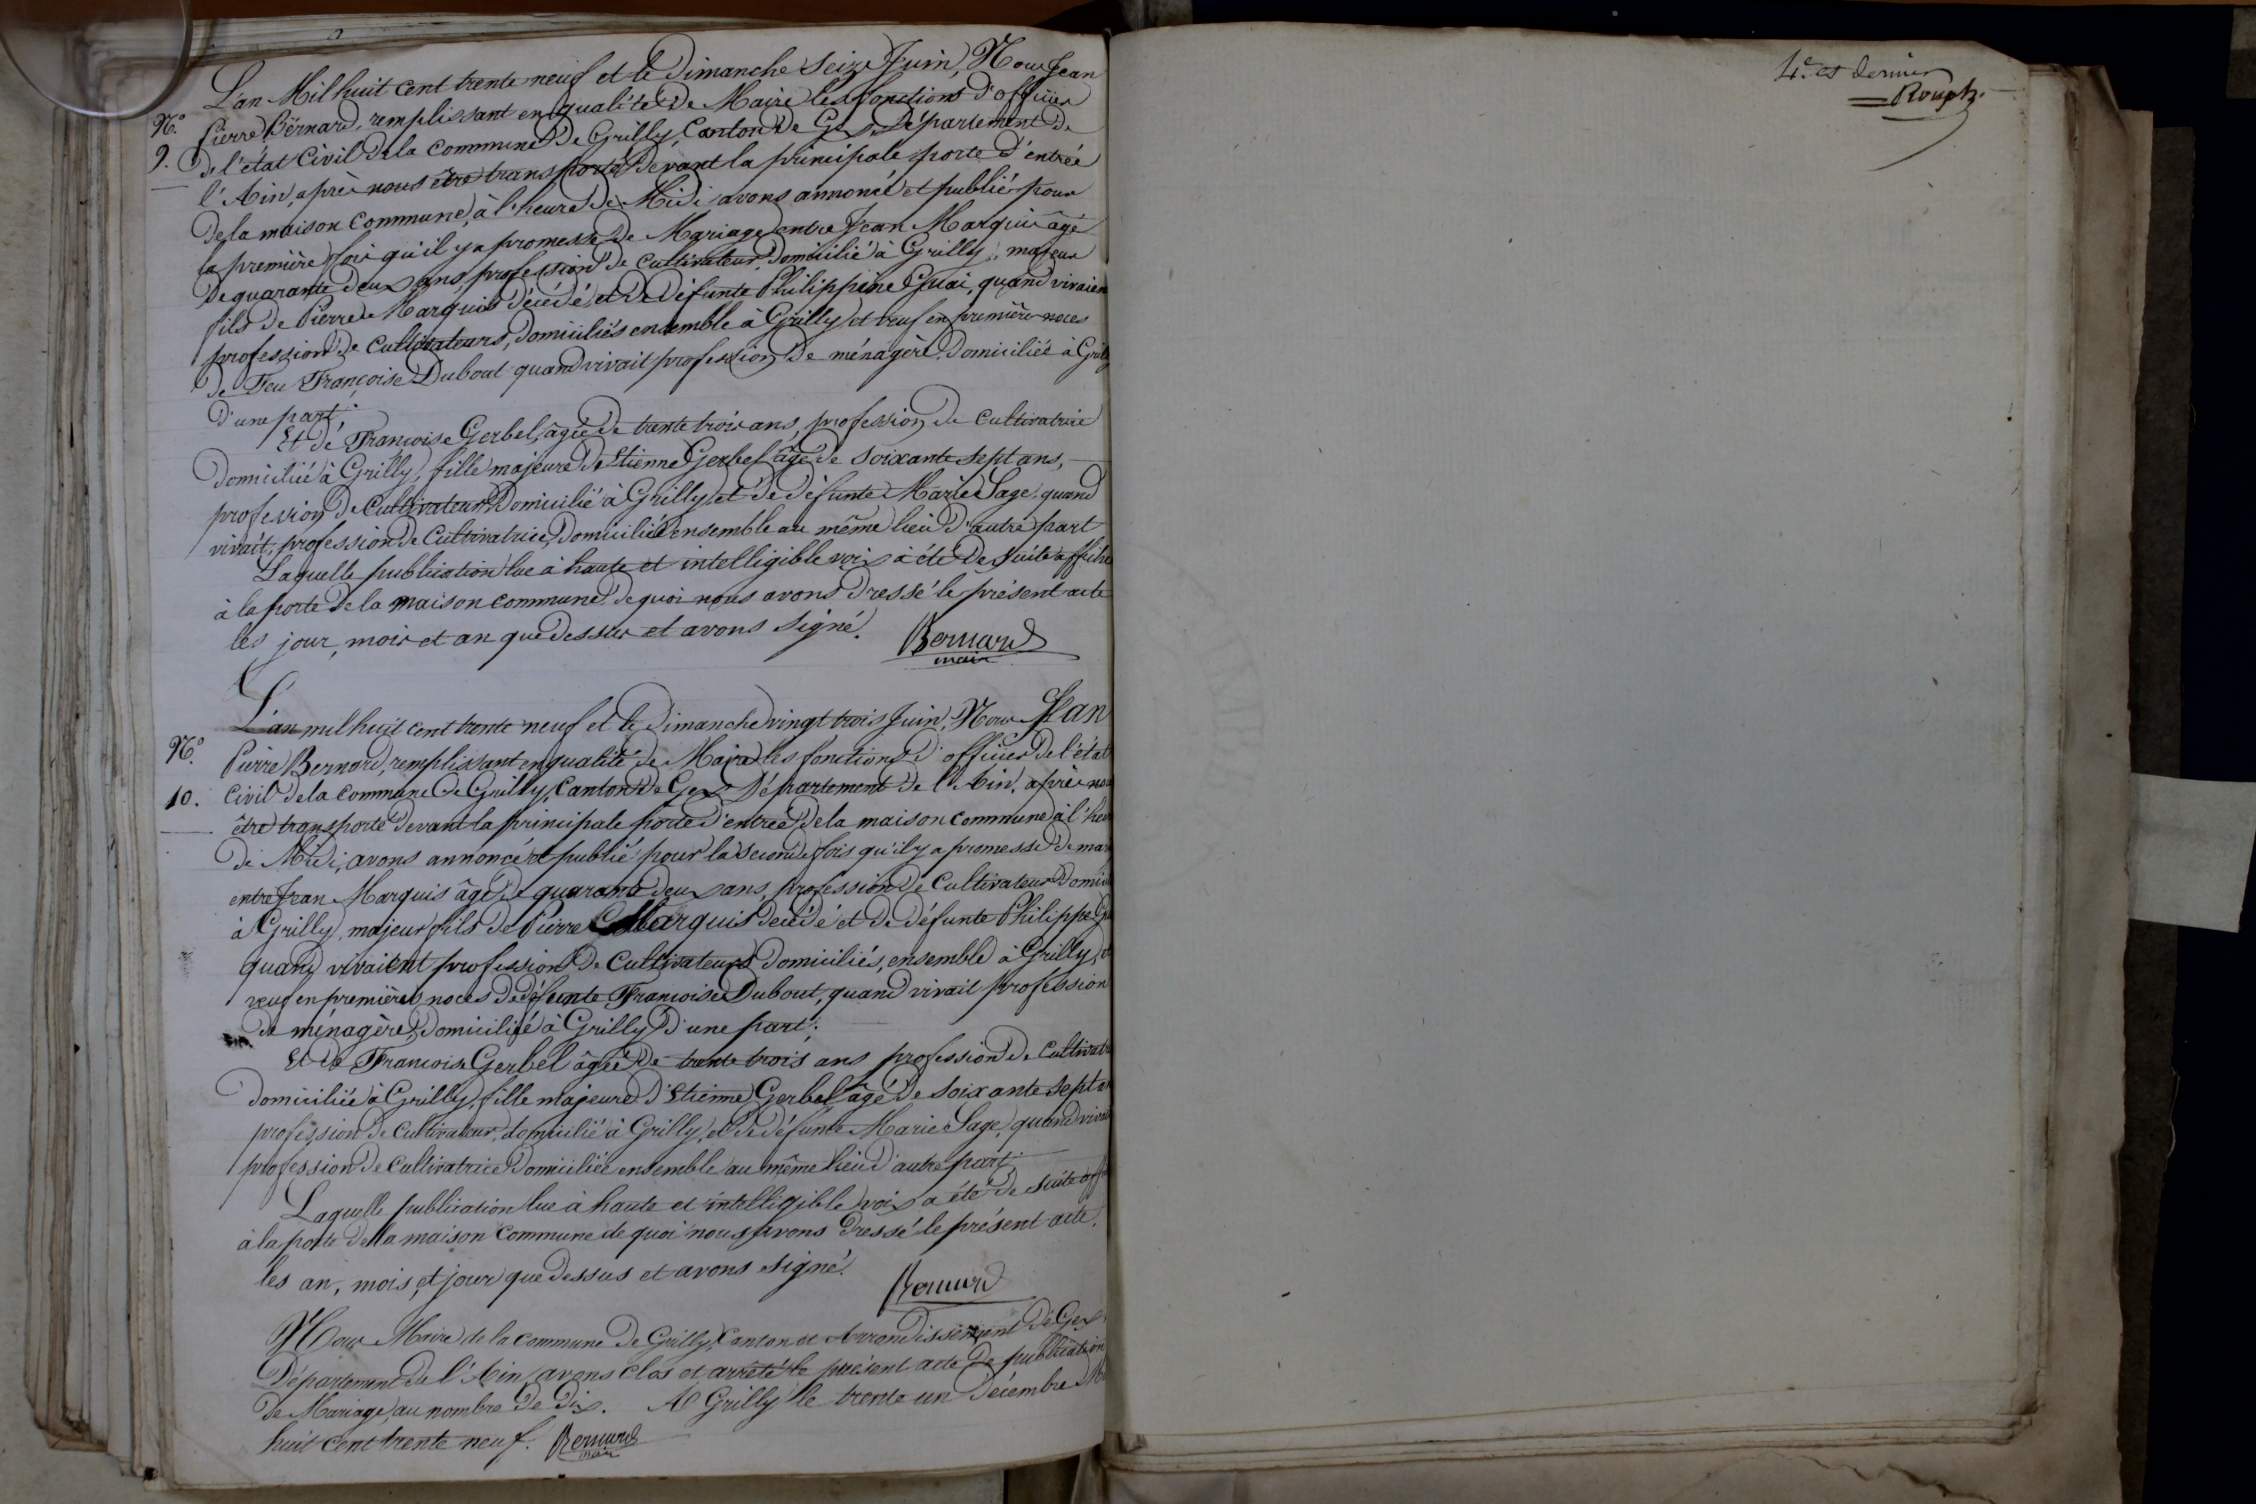 L'an Mil huit cent trente neuf et le Dimanche Seize Juin, Nous Jean
N.o Pierre Bernard, remplissant en qualité de Maire les fonctions d'officier
9. de l'état Civil de la commune de Grilly, Canton de Gex Département de
l'Ain, après nous être transporté devant la principale porte d'entrée
de la maison commune, à l'heure de Midi avons annoncé et publié pour
la première fois qu'il y a promesse de Mariage entre Jean Marquis âgé
de quarante deux ans, profession de cultivateur, domicilié à Grilly, majeur
fils de Pierre Marquis décédé, et de défunte Philippine Guai, quand vivaien
profession de Cultivateurs, domiciliés ensemble à Grilly, et veuf en première noces
de Feu Françoise Dubout quand vivait profession de ménagère, domiciliée à Grilly
d'une part;
Et de Françoise Gerbel, âgée de trente trois ans, profession de cultivatrice
domiciliée à Grilly, fille majeure de Etienne Gerbel âgé de soixante sept ans,
profession de Cultivateur, domicilié à Grilly, et de défunte Marie Sage, quand
vivait, profession de Cultivatrice, domiciliée ensemble au même lieu d'autre part
Laquelle publication lue à haute et intelligible voix à été de suite affiché
à la porte de la maison commune, de quoi nous avons dressé le présent acte
les jour, mois et an que dessus et avons signé.
Bernard
maire
L'an mil huit cent trente neuf et le Dimanche vingt trois Juin, Nous Jean
N.o Pierre Bernard, remplissant en qualité de Maire les fonctions d'officier de l'état
10. Civil de la commune de Grilly, Canton de Gex Département de l'Ain, après nou
être transporté devant la principale porte d'entrée de la maison commune à l'heu
de Midi, avons annoncé et publié pour la seconde fois qu'il y a promesse de mar
entre Jean Marquis âgé de quarante deux ans, profession de Cultivateur domici
à Grilly, majeur fils de Pierre Marquis décédé et de défunte Philippe Gu
quand vivaient profession de Cultivateurs domiciliés, ensemble à Grilly, et
veuf en premières noces de défunte Françoise Dubout, quand vivait profession
de ménagère, domiciliée à Grilly d'une part;
Et de Françoise Gerbel âgée de trente trois ans profession de Cultivatr
domiciliée à Grilly, fille majeure d'Etienne Gerbel, âgé de soixante sept a
profession de Cultivateur, domicilié à Grilly, et de défunte Marie Sage, quand vivai
profession de Cultivatrice domiciliée ensemble au même lieu d'autre part;
Laquelle publication lue à haute et intelligible voix a été de suite aff
à la porte de la maison commune de quoi nous avons dressé le présent acte,
les an, mois, et jour que dessus et avons signé.
Bernard
Nous Maire de la commune de Grilly, Canton et Arrondissement de Gex
Département de l'Ain, avons clos et arrêté le présent acte de publication
de Mariage, au nombre de dix. A Grilly le trente un Décembre Mi
huit cent trente neuf. Bernard
maire
4.e et dernier